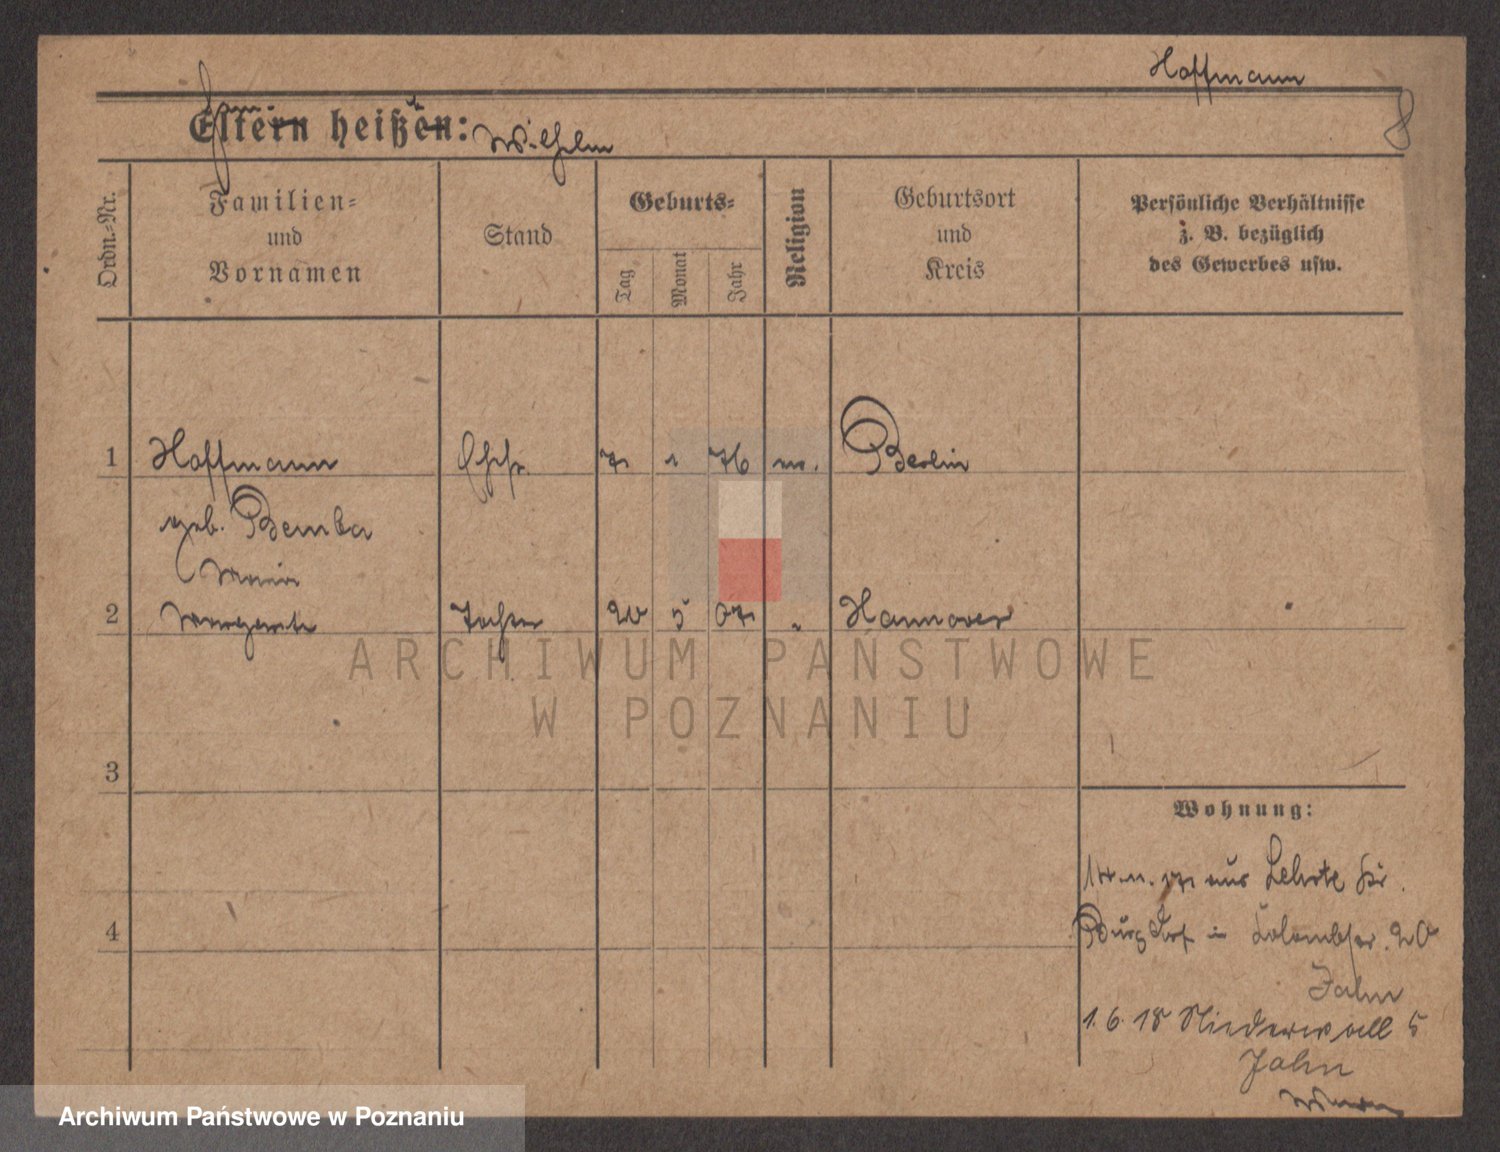 Hoffmann
8
Eltern heißen: Wilhelm
Ordn.-Nr.
Familien-
und
Vornamen
Stand
Geburts-
Tag
Monat
Jahr
Religion
Geburtsort
und
Kreis
Persönliche Verhältnisse
z. B. bezüglich
des Gewerbes usw.
1 Hoffmann Ehefr. 7 1 76 Berlin
geb. Bemba
Maria
2 Margarete Tochter 20 5 07 " Hannover
3
4
Wohnung:
17 aus Lehrte Kr.
Burgdorf in 20
Jahn
1.6.18 Niederwall 5
Jahn
ARCHIWUM PAŃSTWOWE
W POZNANIU
Archiwum Państwowe w Poznaniu